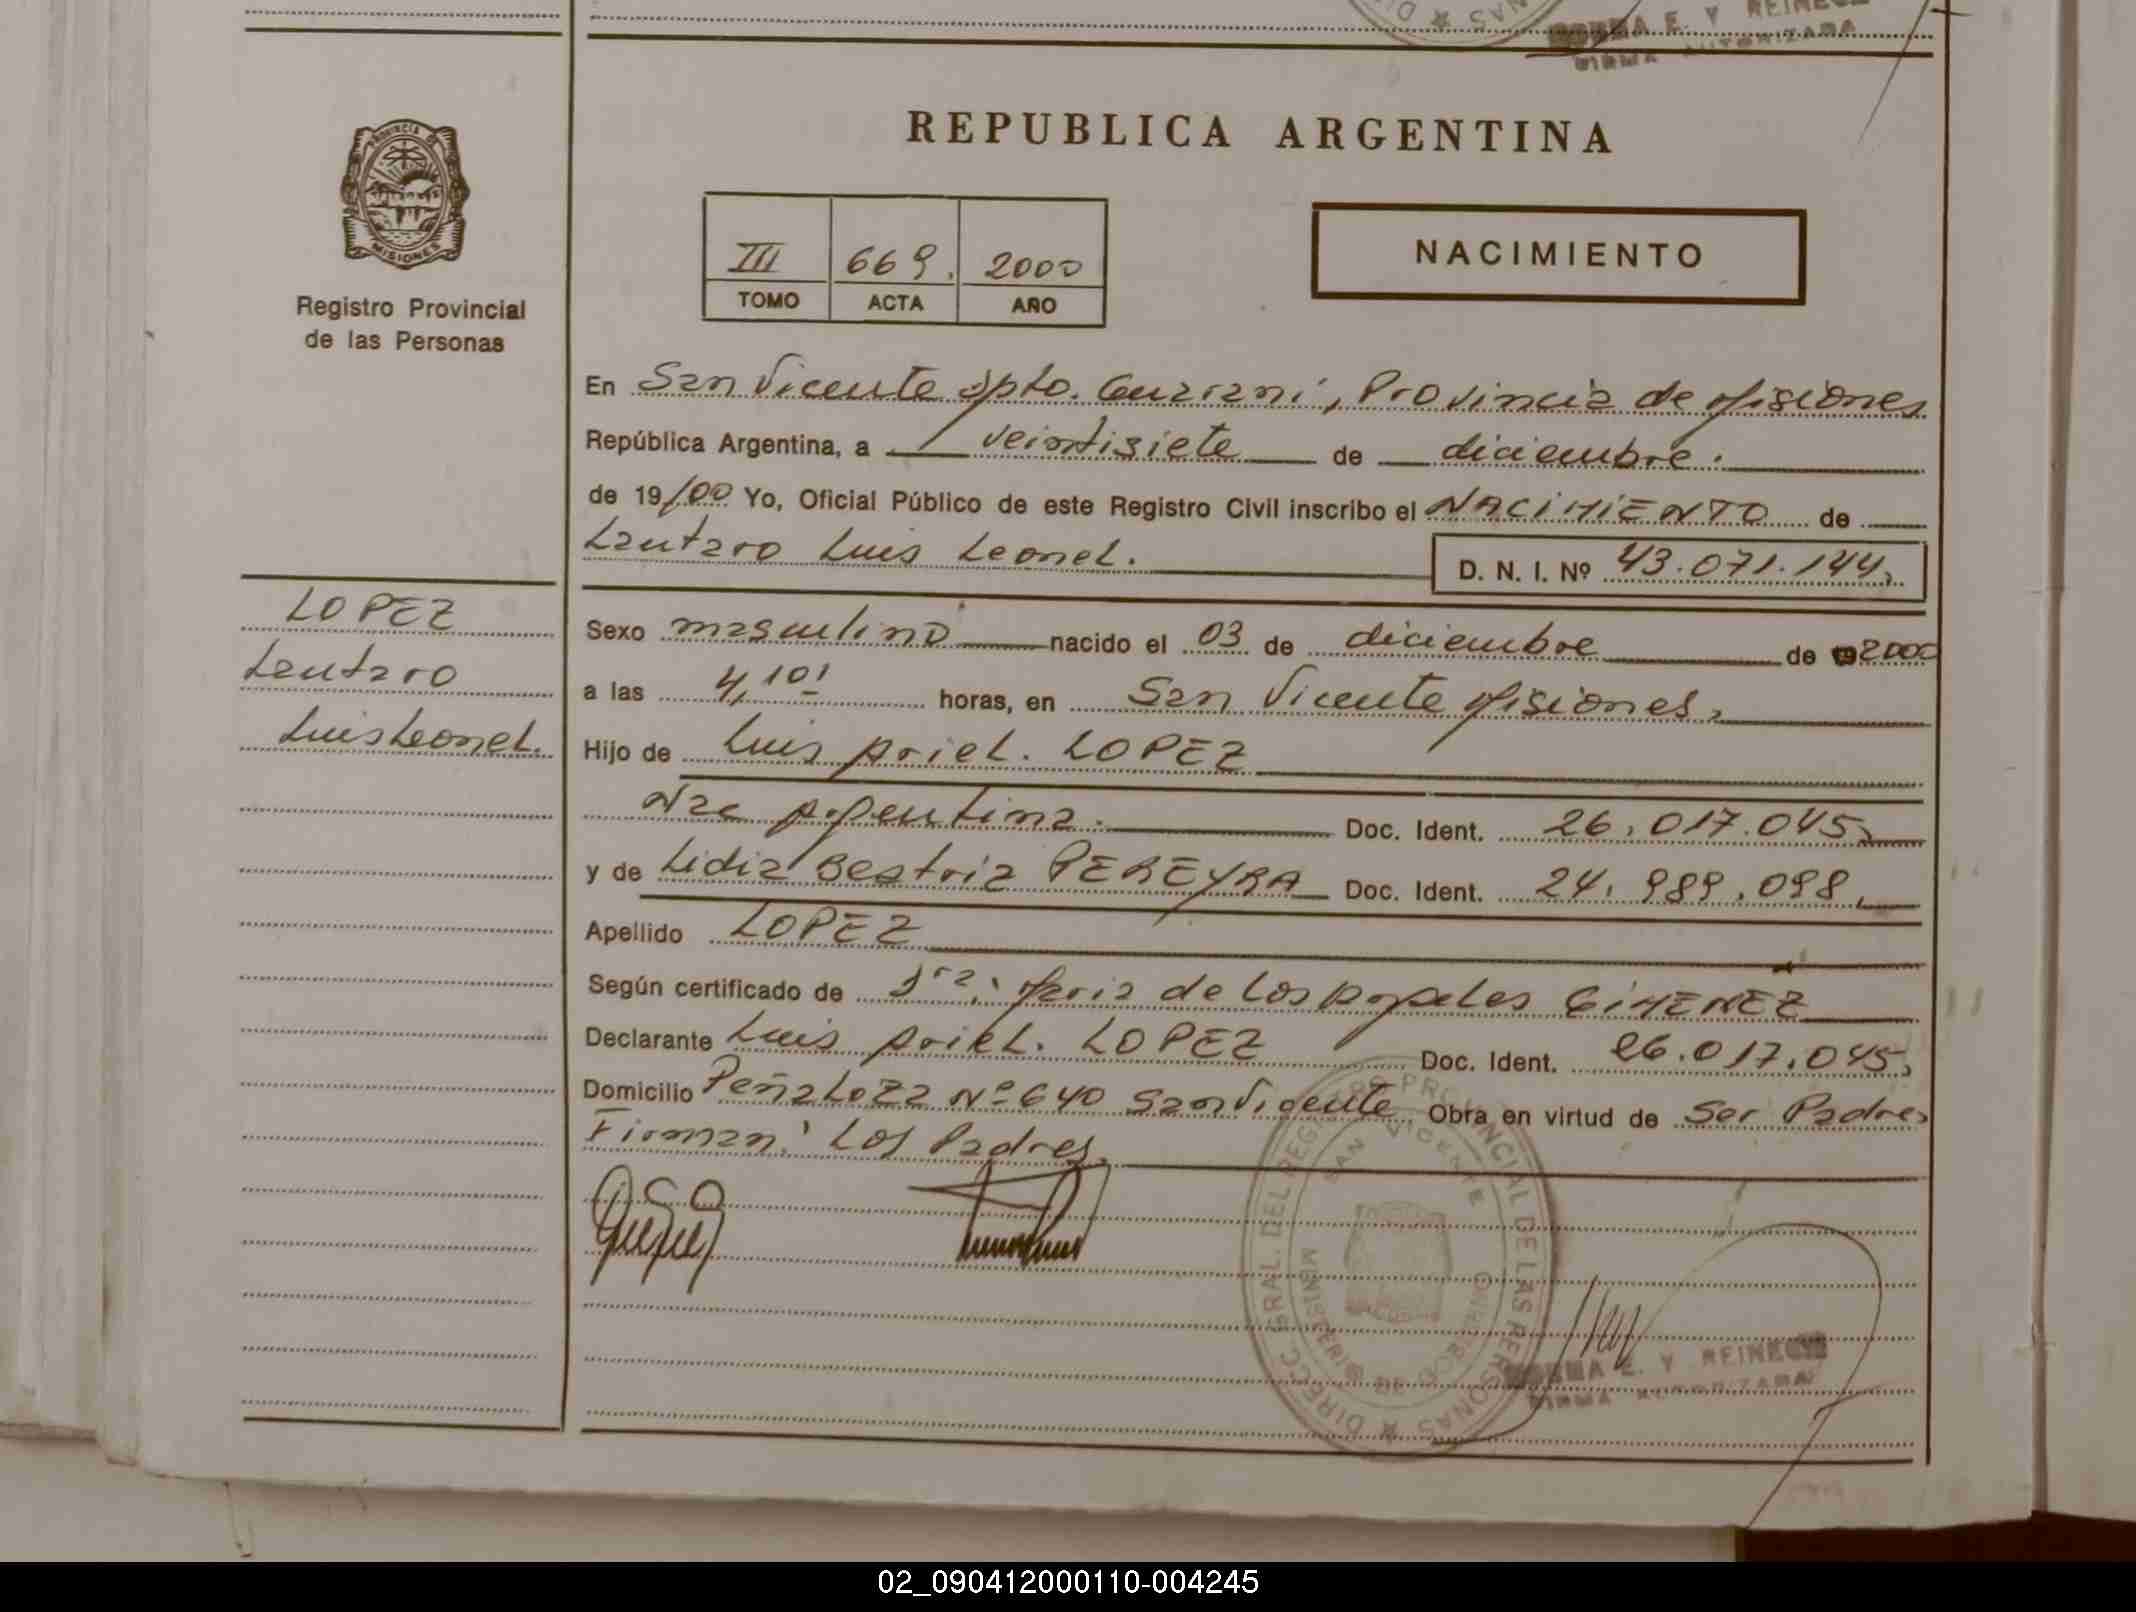 REINECK
FIRMA AUTORIZADA
REPUBLICA ARGENTINA
PROVINCIA DE
MISIONES
III 669. 2000
TOMO ACTA AÑO
NACIMIENTO
Registro Provincial
de las Personas
En San Vicente Dpto. Guaraní, Provincia de Misiones
República Argentina, a veintisiete de diciembre.
de 19/00 Yo, Oficial Público de este Registro Civil inscribo el NACIMIENTO de
Lautaro Luis Leonel. D. N. I. Nº 43.071.144,
LOPEZ
Lautaro
Luis Leonel.
Sexo masculino nacido el 03 de diciembre de 2000
a las 4,10' horas, en San Vicente Misiones,
Hijo de Luis Ariel. LOPEZ
Nac Argentina. Doc. Ident. 26.017.045,
y de Lidia Beatriz PEREYRA Doc. Ident. 24.989.098,
Apellido LOPEZ
Según certificado de Dra. Maria de Los Angeles GIMENEZ
Declarante Luis Ariel. LOPEZ Doc. Ident. 26.017.045,
Domicilio Peñaloza Nº 640 San Vicente Obra en virtud de Ser Padres
Firman: Los Padres.
DIRECC. GRAL. DEL REG. PROVINCIAL DE LAS PERSONAS
SAN VICENTE
MINISTERIO DE GOBIERNO
E. Y REINECK
FIRMA AUTORIZADA
02_090412000110-004245